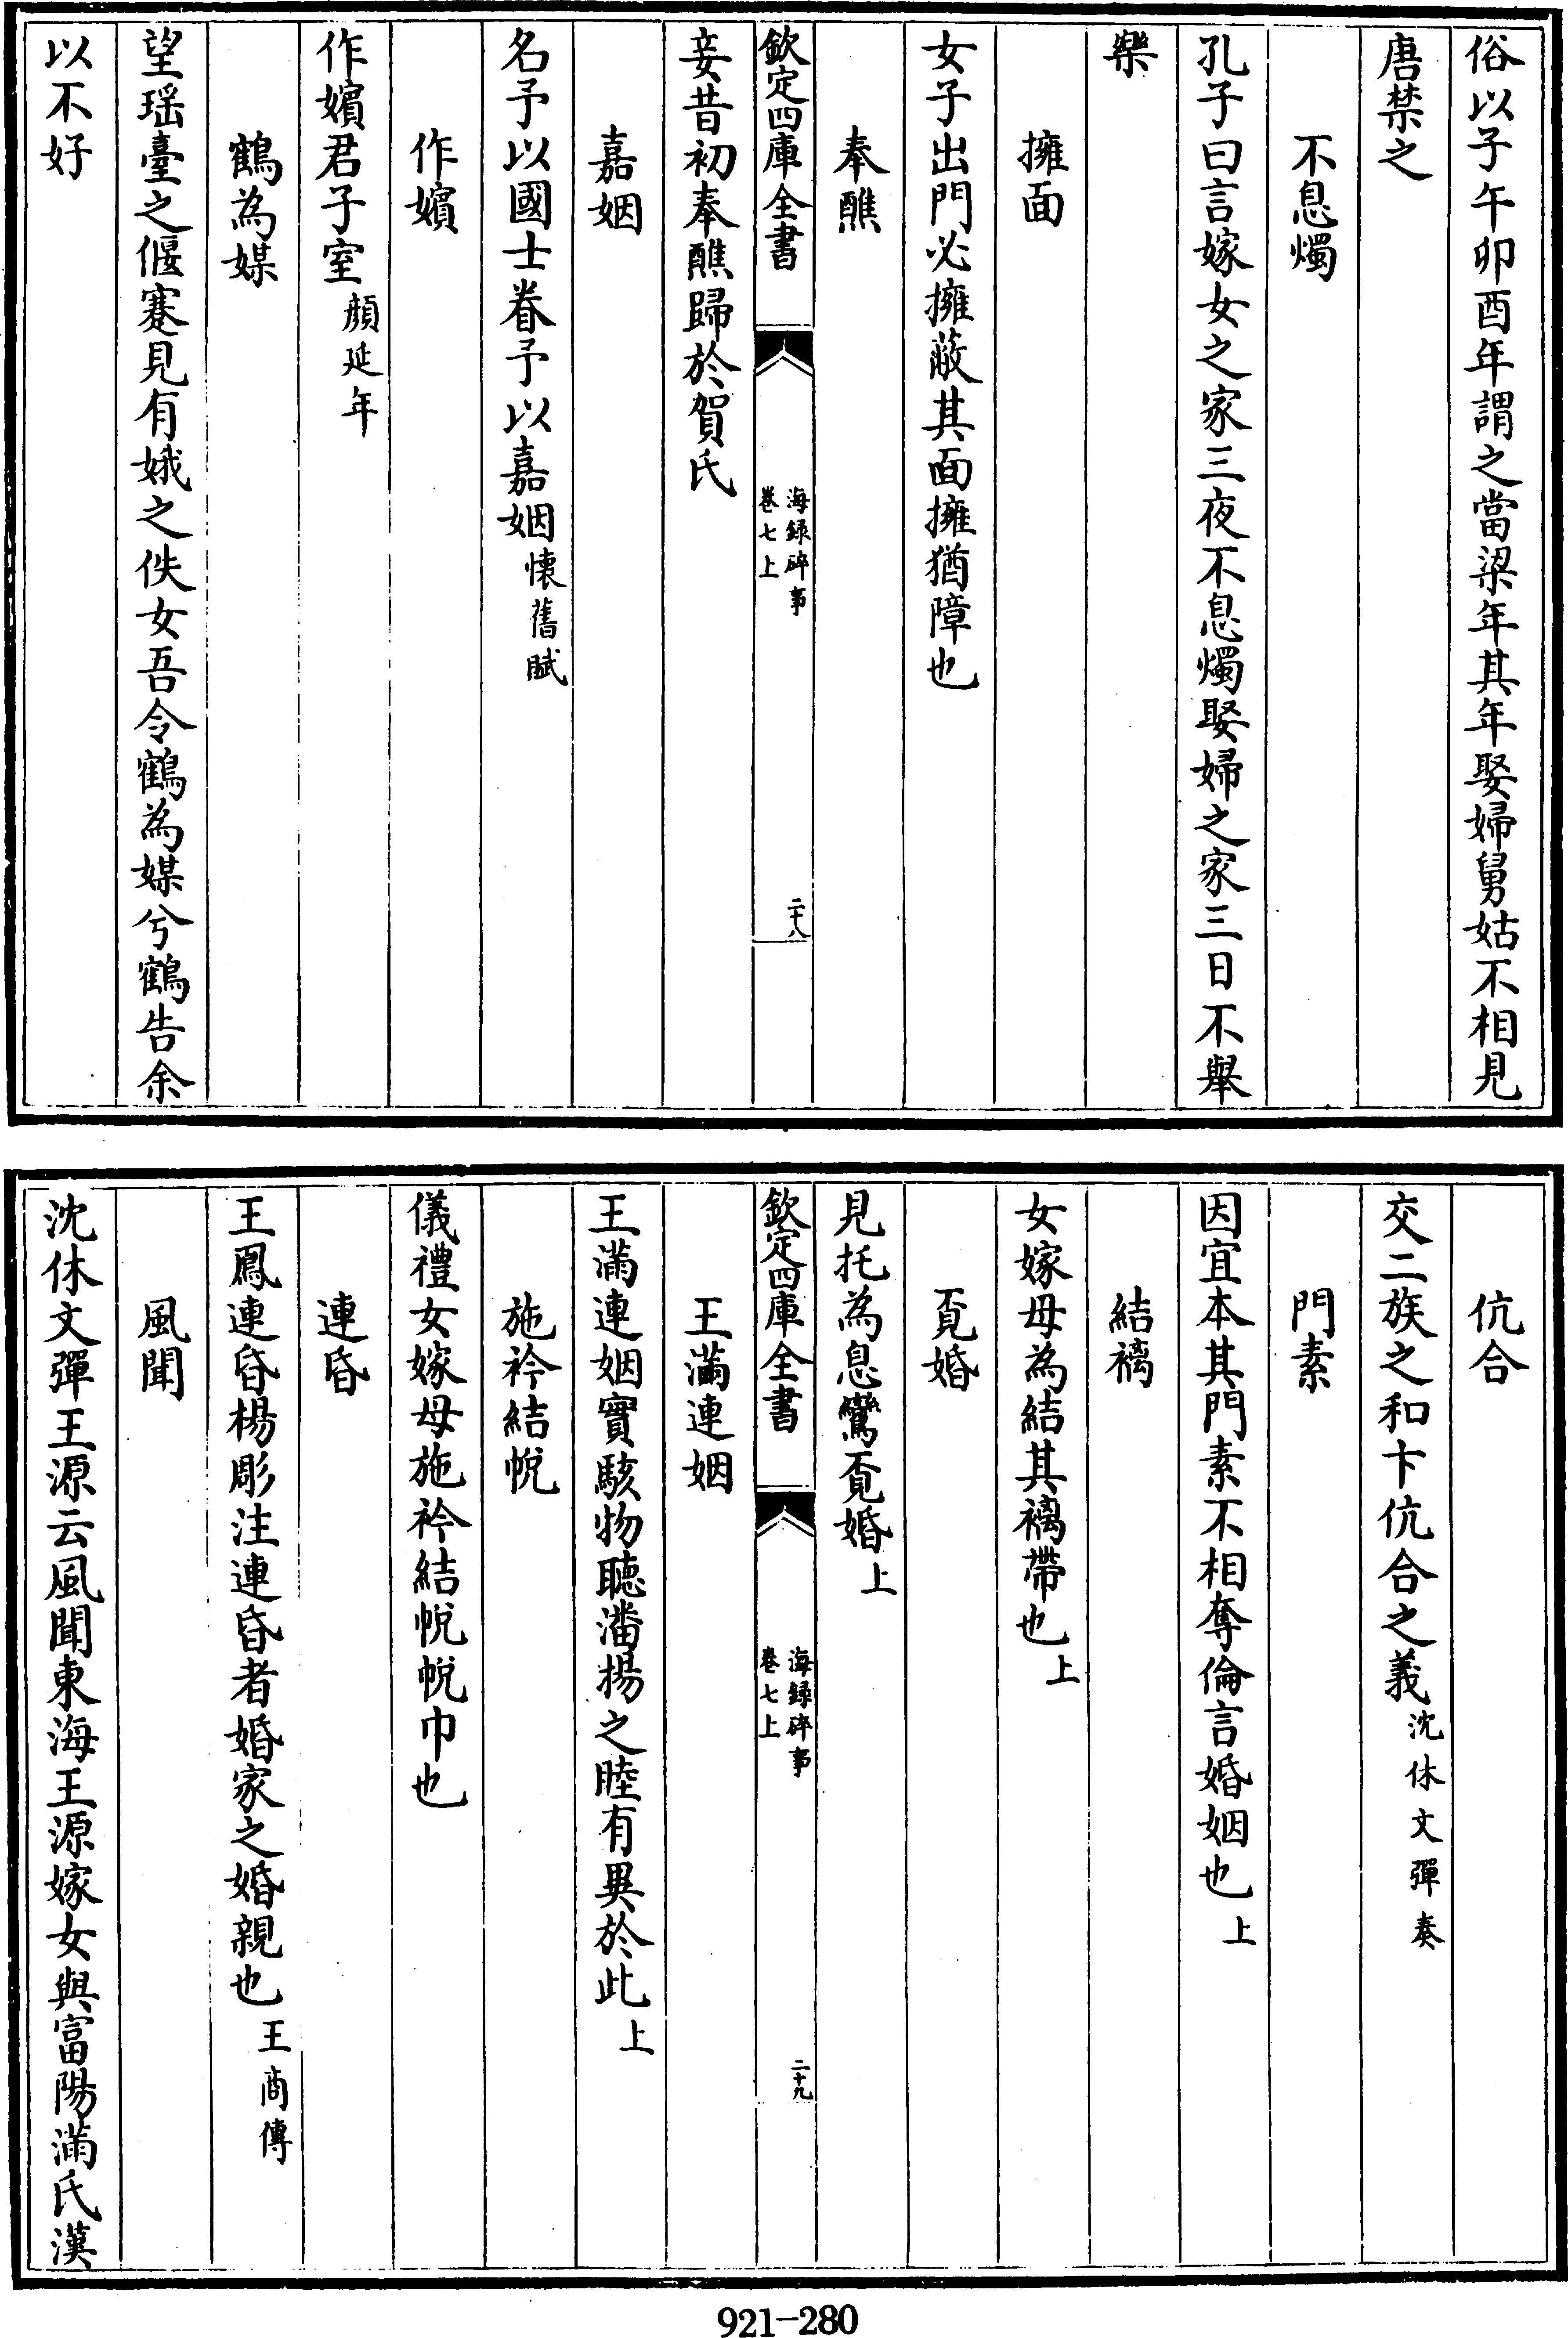 俗以子午卯酉年謂之當梁年其年娶婦舅姑不相見
唐禁之
不息燭
孔子曰言嫁女之家三夜不息燭娶婦之家三日不舉
樂
擁面
女子出門必擁蔽其面擁猶障也
奉醮
欽定四庫全書
海録碎事
卷七上
二十八
妾昔初奉醮歸於賀氏
嘉姻
名予以國士眷予以嘉姻懷舊賦
作嬪
作嬪君子室顔延年
鶴為媒
望瑶臺之偃蹇見有娥之佚女吾令鶴為媒兮鶴告余
以不好
伉合
交二族之和卞伉合之義沈休文彈奏
門素
因宜本其門素不相奪倫言婚姻也上
結褵
女嫁母為結其褵帶也上
覔婚
見托為息鸞覔婚上
欽定四庫全書
海録碎事
卷七上
二十九
王滿連姻
王滿連姻實駭物聽潘揚之睦有異於此上
施衿結帨
儀禮女嫁母施衿結帨帨巾也
連昏
王鳳連昏楊彫注連昏者婚家之婚親也王商傳
風聞
沈休文彈王源云風聞東海王源嫁女與富陽滿氏漢
921-280